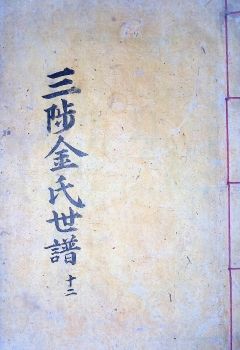 三陟金氏世譜 十二